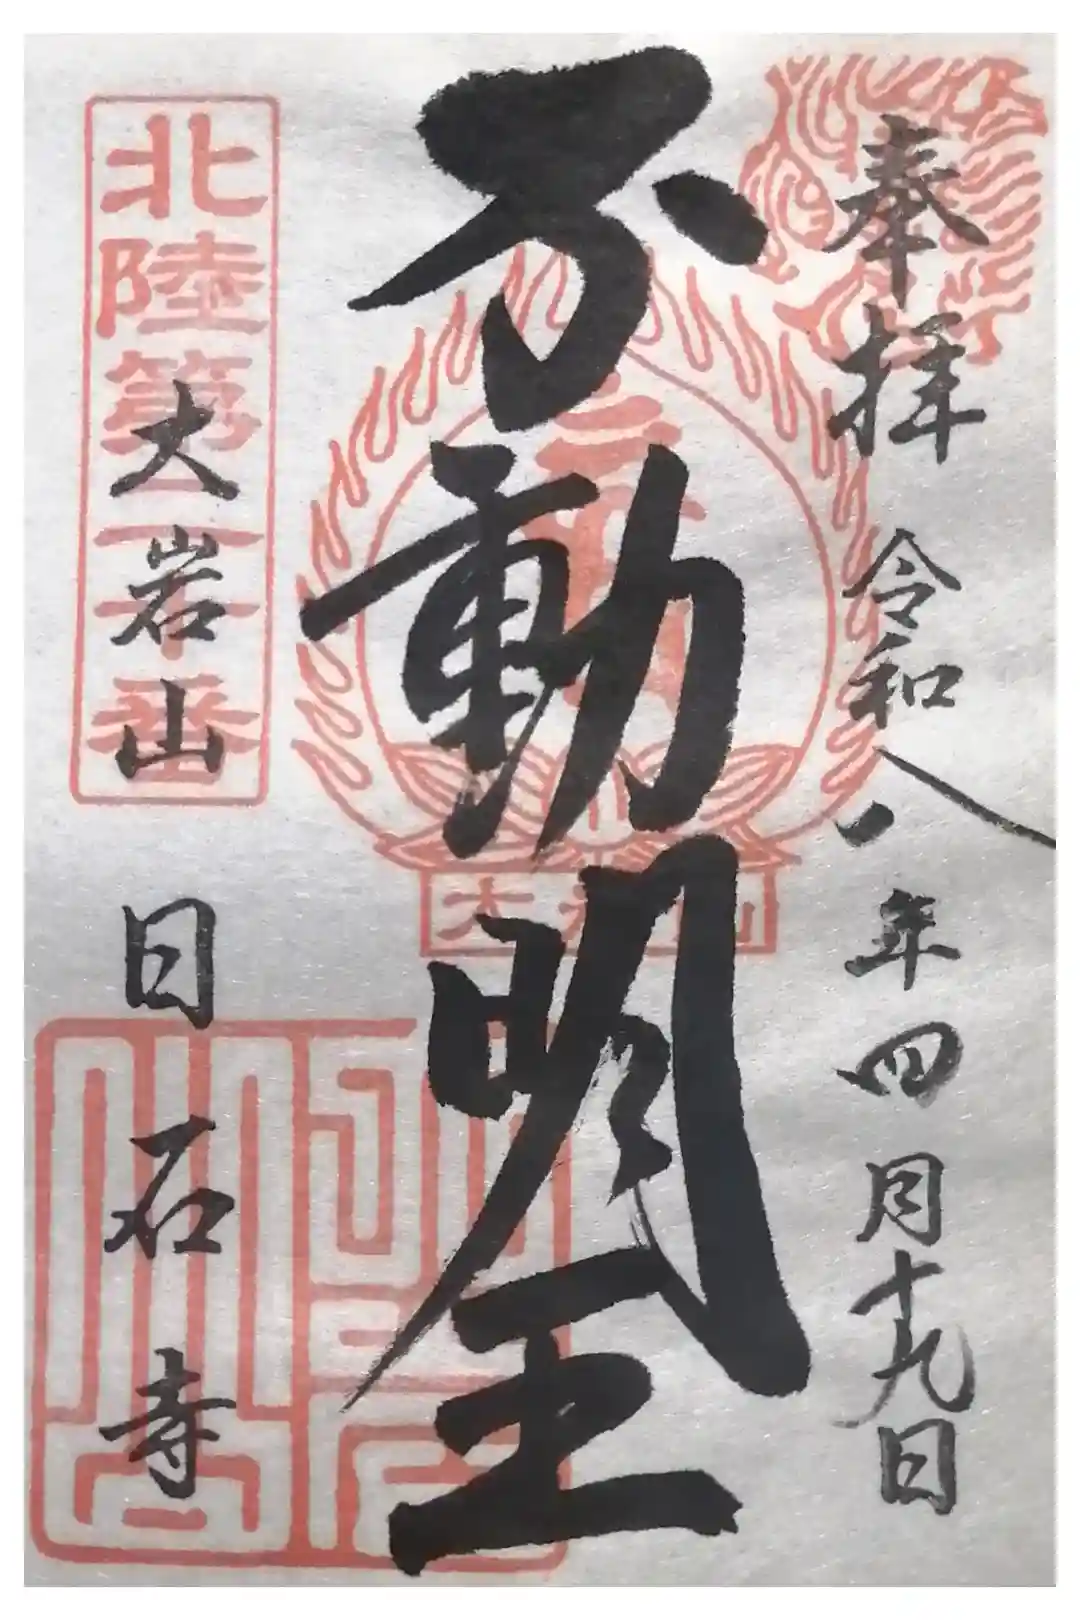 奉拝 令和八年四月十九日
不動明王
大岩山
北陸第二十番
大岩山 日石寺